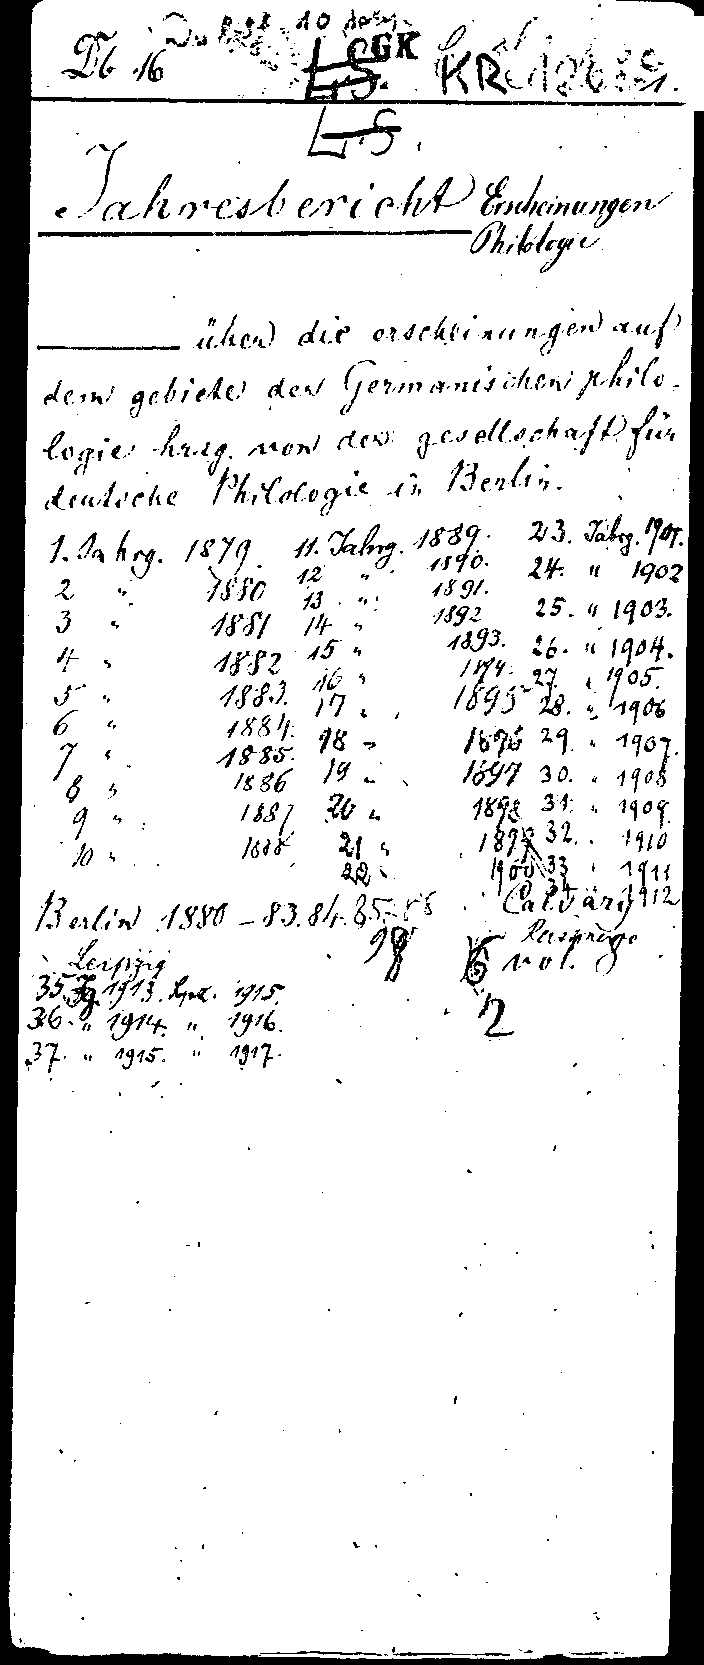 Db 16
L.S.
GK
KR
L.S.
Jahresbericht Erscheinungen
Philologie
über die erscheinungen auf
dem gebiete der Germanischen philo-
logie hrsg. von der gesellschaft für
deutsche Philologie in Berlin.
1. Jahrg. 1879. 11. Jahrg. 1889. 23. Jahrg. 1901.
2 " 1880 12 " 1890. 24. " 1902
3 " 1881 13 " 1891. 25. " 1903.
4 " 1882 14 " 1892 26. " 1904.
5 " 1883. 15 " 1893. 27. " 1905.
6 " 1884. 16 " 1894. 28. " 1906
7 " 1885. 17 " 1895 29. " 1907.
8 " 1886 18 " 1896 30. " 1908
9 " 1887 19 " 1897 31. " 1909
10 " 1888 20 " 1898 32. " 1910
21 " 1899 33 " 1911
22 " 1900 34 1912
Berlin 1880 - 83. 84. 85. 88 Calváry
98
Leipzig
6 vol.
35. Jg. 1913. Lpz. 1915.
36. " 1914. " 1916.
37. " 1915. " 1917.
2